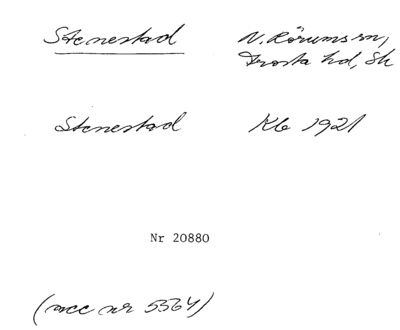 Stenestad N. Rörums sn,
Frosta hd, Sk
Stenestad Kb 1921
Nr 20880
(acc nr 5564)